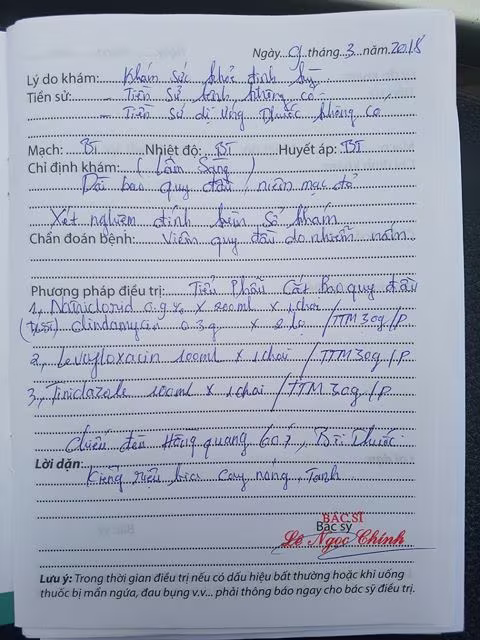 Ngày 9 tháng 3 năm 2018
Lý do khám: Khám sức khỏe định kỳ
Tiền sử: - Tiền sử bệnh không có
- Tiền sử dị ứng thuốc không có
Mạch: BT Nhiệt độ: BT Huyết áp: BT
Chỉ định khám: (Lâm Sàng)
Dài bao quy đầu, niêm mạc đỏ
Xét nghiệm đính kèm sổ khám
Chẩn đoán bệnh: Viêm quy đầu do nhiễm nấm
Phương pháp điều trị: Tiểu Phẫu Cắt Bao quy đầu
1, Natriclorid 0.9% x 200ml x 1 chai
clindamycin 0.3g x 2 lọ / TTM 30g/p
2, Levofloxacin 100ml x 1 chai / TTM 30g/p
3, Tinidazole 100ml x 1 chai / TTM 30g/p
Chiếu đèn Hồng quang 60 , Bôi thuốc
Lời dặn:
Kiêng rượu bia, cay nóng, Tanh
BÁC SĨ
Bác sỹ
Lê Ngọc Chính
Lưu ý: Trong thời gian điều trị nếu có dấu hiệu bất thường hoặc khi uống
thuốc bị mẩn ngứa, đau bụng v.v... phải thông báo ngay cho bác sỹ điều trị.